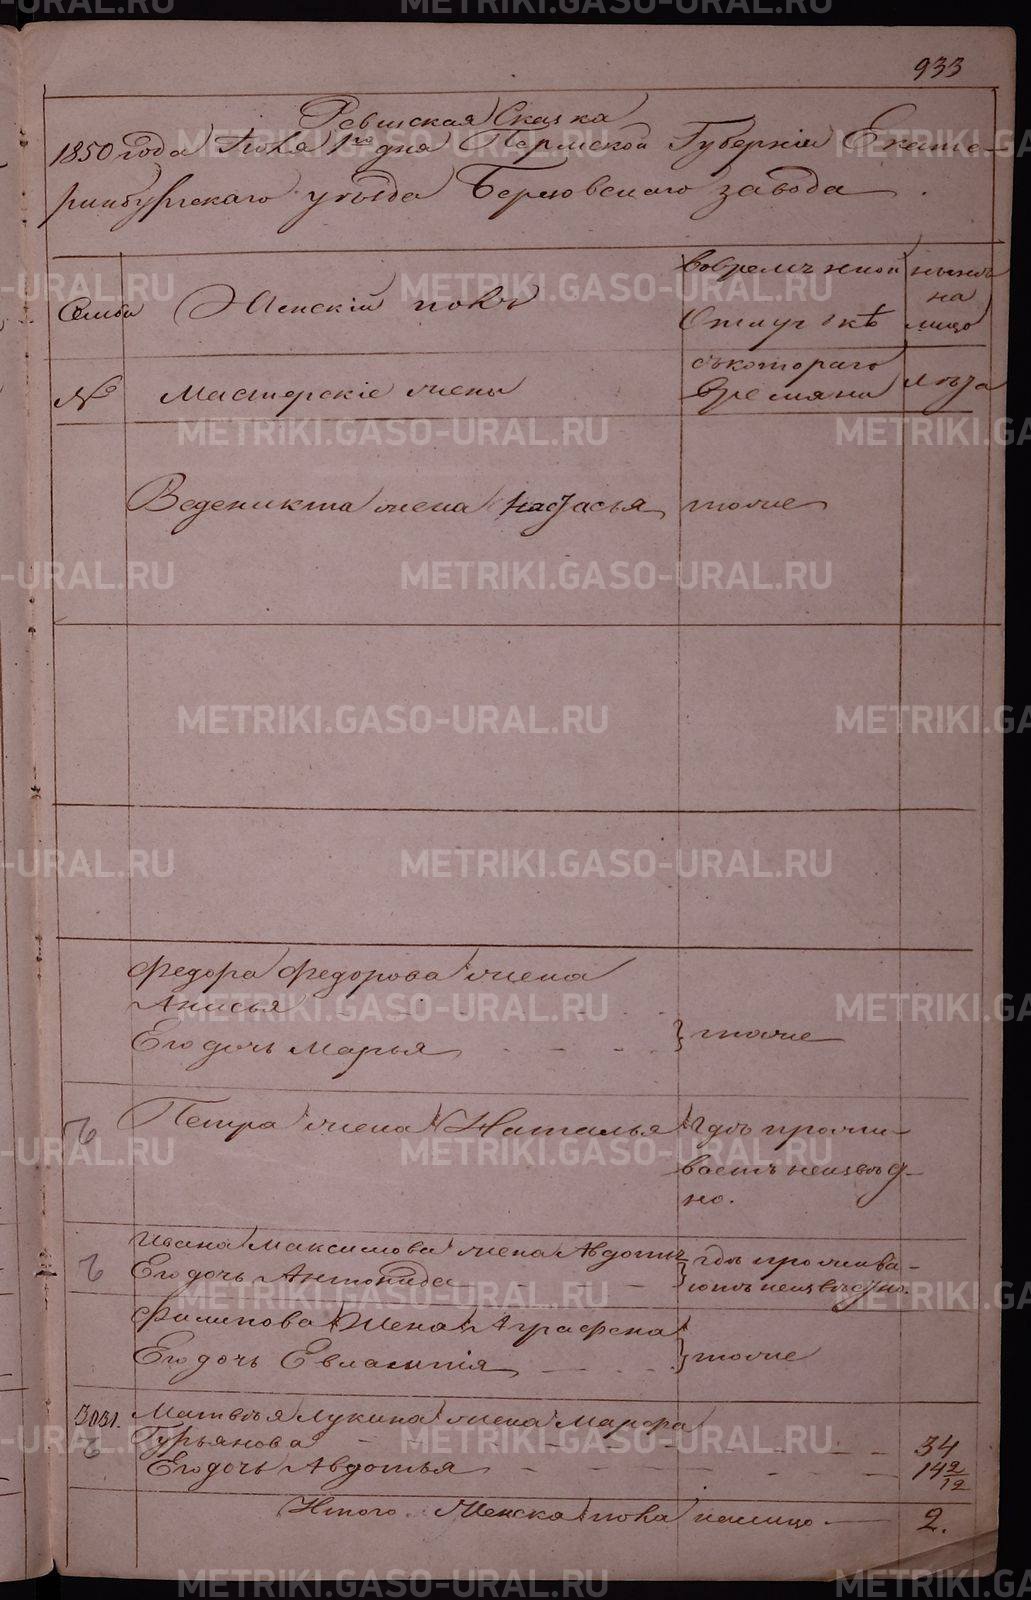 933
Ревизская Сказка
1850 года Июня 1го дня Пермской Губерніи Екате-
ринбургскаго уѣзда Березовскаго завода
Семьи
Женскій полъ
вовремѣнной
Отлучькѣ
нынѣ
на
лицо
№
Мастерскіе жены
съкотораго
времяни
лѣта
Веденикта жена Настасья тоже
Федора Федорова жена
Анисья
Его дочь Марья } тоже
Петра жена Наталья Гдѣ прожи-
ваетъ неизвѣд-
но.
Ивана Максимова жена Авдотья } гдѣ прожива-
Его дочь Антонида ютъ неизвѣдно.
Филипова Жена Аграфена
Его дочь Евлампія } тоже
3031. Матвѣя Лукина жена Марфа
Гурьянова 34
Его дочь Авдотья 14 2/12
Итого Женска пола налицо 2.
METRIKI.GASO-URAL.RU